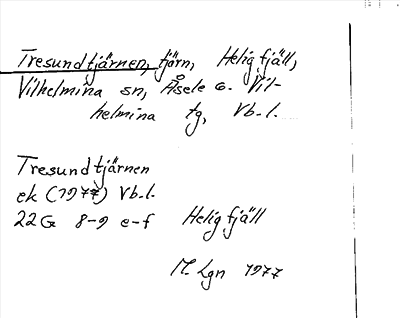 Tresundtjärnen, tjärn, Heligfjäll,
Vilhelmina sn, Åsele o. Vil-
helmina tg, Vb.l.
Tresundtjärnen
ek (1977) Vb.l.
22G 8-9 e-f Heligfjäll
M. Lgn 1977